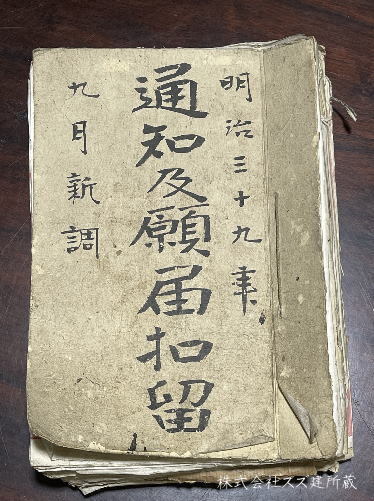 明治三十九年
通知及願届扣留
九月新調
株式会社スズ建所蔵